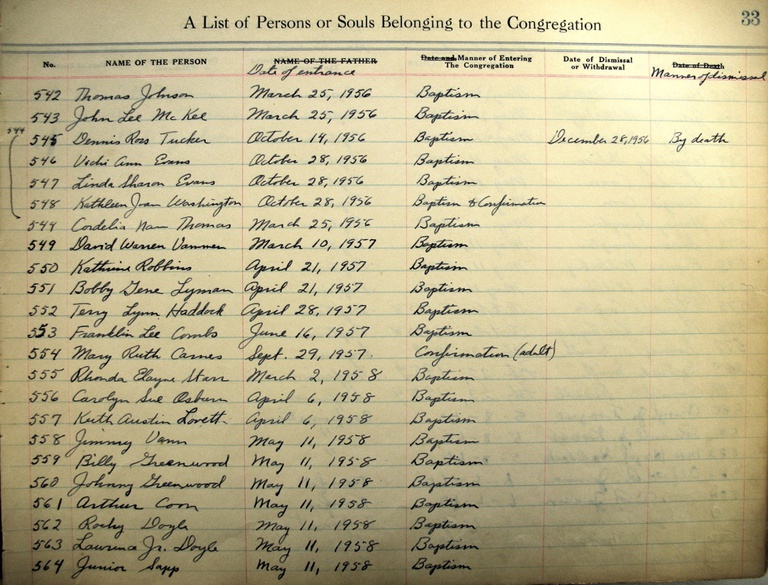 A List of Persons or Souls Belonging to the Congregation 33
No. NAME OF THE PERSON NAME OF THE FATHER Date and Manner of Entering The Congregation Date of Dismissal or Withdrawal Date of Death
Date of entrance Manner of dismissal
542 Thomas Johnson March 25, 1956 Baptism
543 John Lee McKee March 25, 1956 Baptism
544
545 Dennis Ross Tucker October 14, 1956 Baptism December 28, 1956 By death
546 Vicki Ann Evans October 28, 1956 Baptism
547 Linda Sharon Evans October 28, 1956 Baptism
548 Kathleen Joan Washington October 28, 1956 Baptism & Confirmation
544 Cordelia Nan Thomas March 25, 1956 Baptism
549 David Warren Vammen March 10, 1957 Baptism
550 Kathrine Robbins April 21, 1957 Baptism
551 Bobby Gene Lyman April 21, 1957 Baptism
552 Terry Lynn Haddock April 28, 1957 Baptism
553 Franklin Lee Combs June 16, 1957 Baptism
554 Mary Ruth Carnes Sept. 29, 1957 Confirmation (adult)
555 Rhonda Elayne Starr March 2, 1958 Baptism
556 Carolyn Sue Osburn April 6, 1958 Baptism
557 Keith Austin Lovett April 6, 1958 Baptism
558 Jimmy Vann May 11, 1958 Baptism
559 Billy Greenwood May 11, 1958 Baptism
560 Johnny Greenwood May 11, 1958 Baptism
561 Arthur Coon May 11, 1958 Baptism
562 Rocky Doyle May 11, 1958 Baptism
563 Lawrence Jr. Doyle May 11, 1958 Baptism
564 Junior Sapp May 11, 1958 Baptism